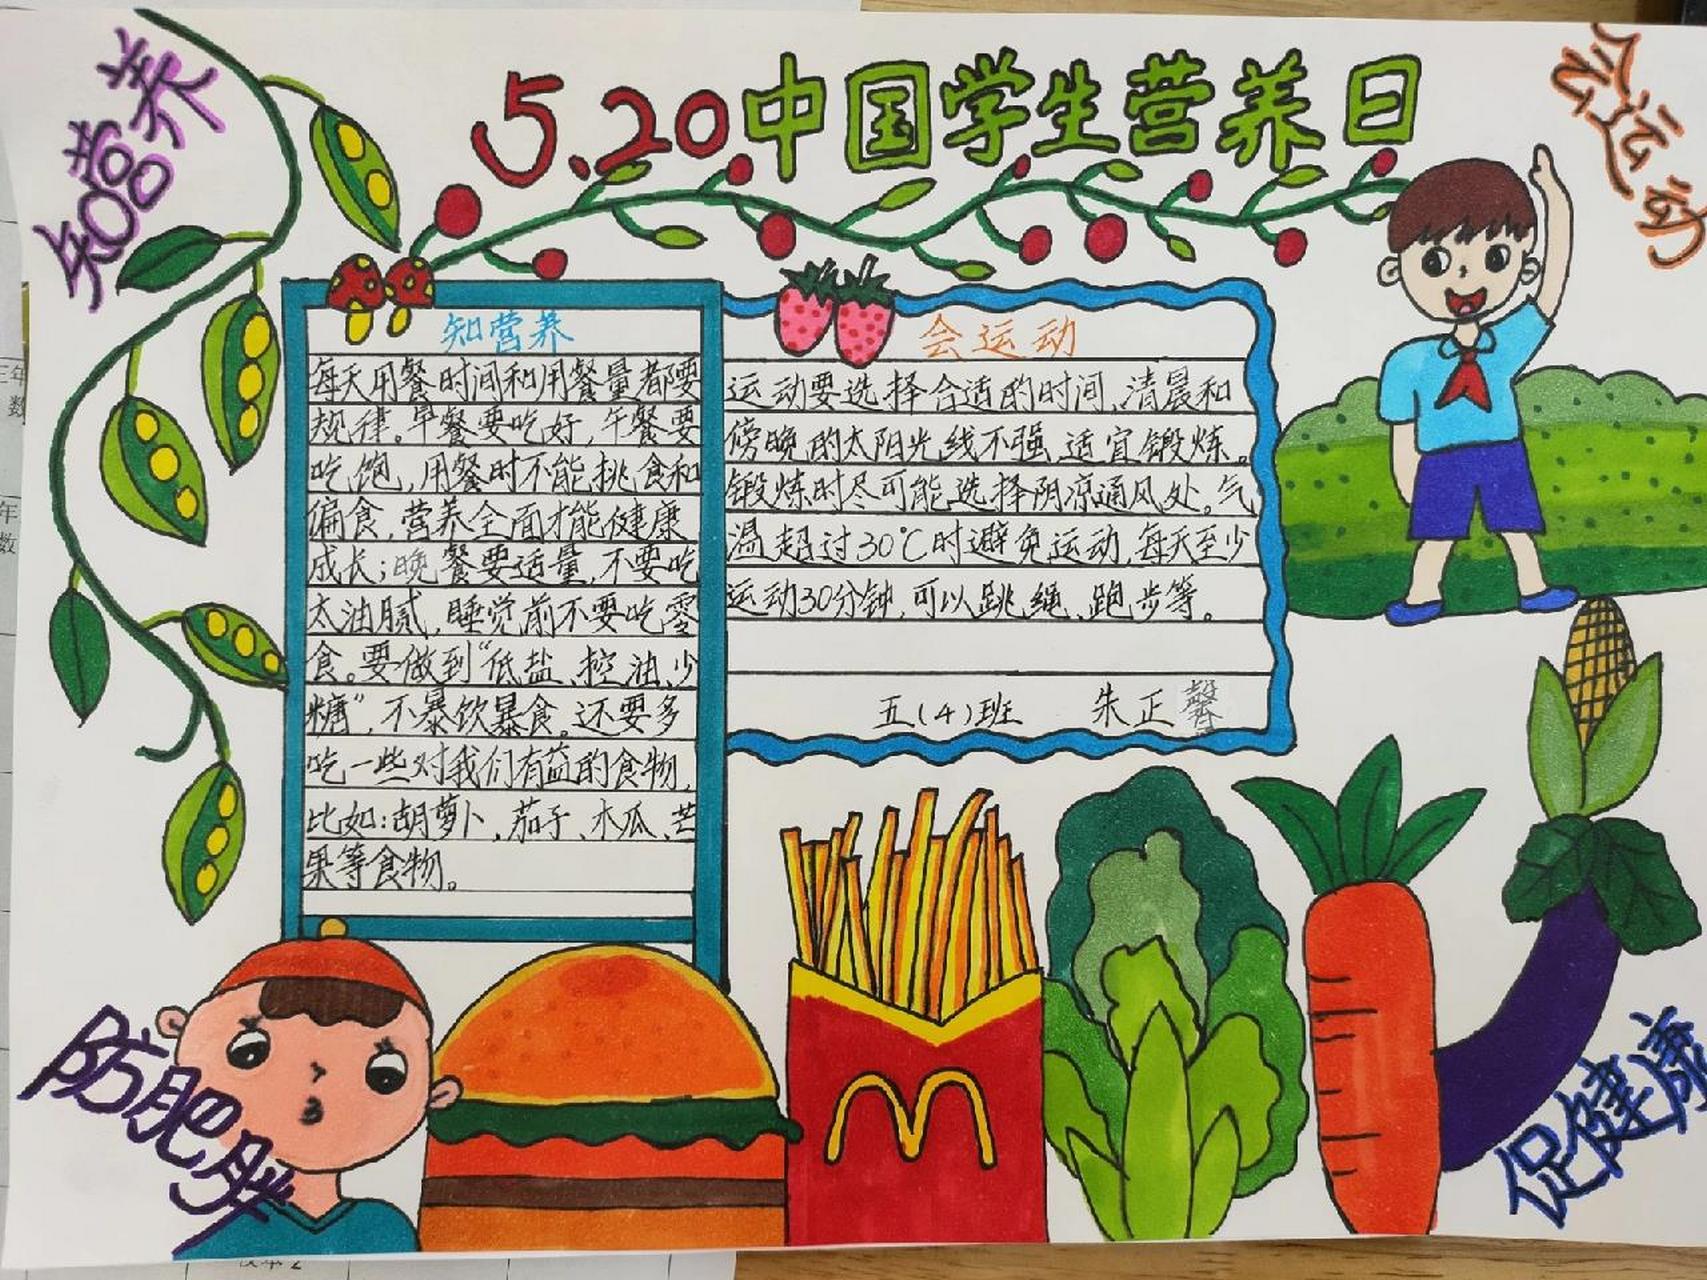 知营养
5.20中国学生营养日
会运动
知营养
每天用餐时间和用餐量都要
规律。早餐要吃好,午餐要
吃饱,用餐时不能挑食和
偏食,营养全面才能健康
成长;晚餐要适量,不要吃
太油腻,睡觉前不要吃零
食。要做到“低盐、控油、少
糖”,不暴饮暴食。还要多
吃一些对我们有益的食物,
比如:胡萝卜、茄子、木瓜、芒
果等食物。
会运动
运动要选择合适的时间,清晨和
傍晚的太阳光线不强,适宜锻炼。
锻炼时尽可能选择阴凉通风处。气
温超过30℃时避免运动,每天至少
运动30分钟,可以跳绳、跑步等。
五(4)班 朱正馨
防肥胖
促健康
三年
数
年
数